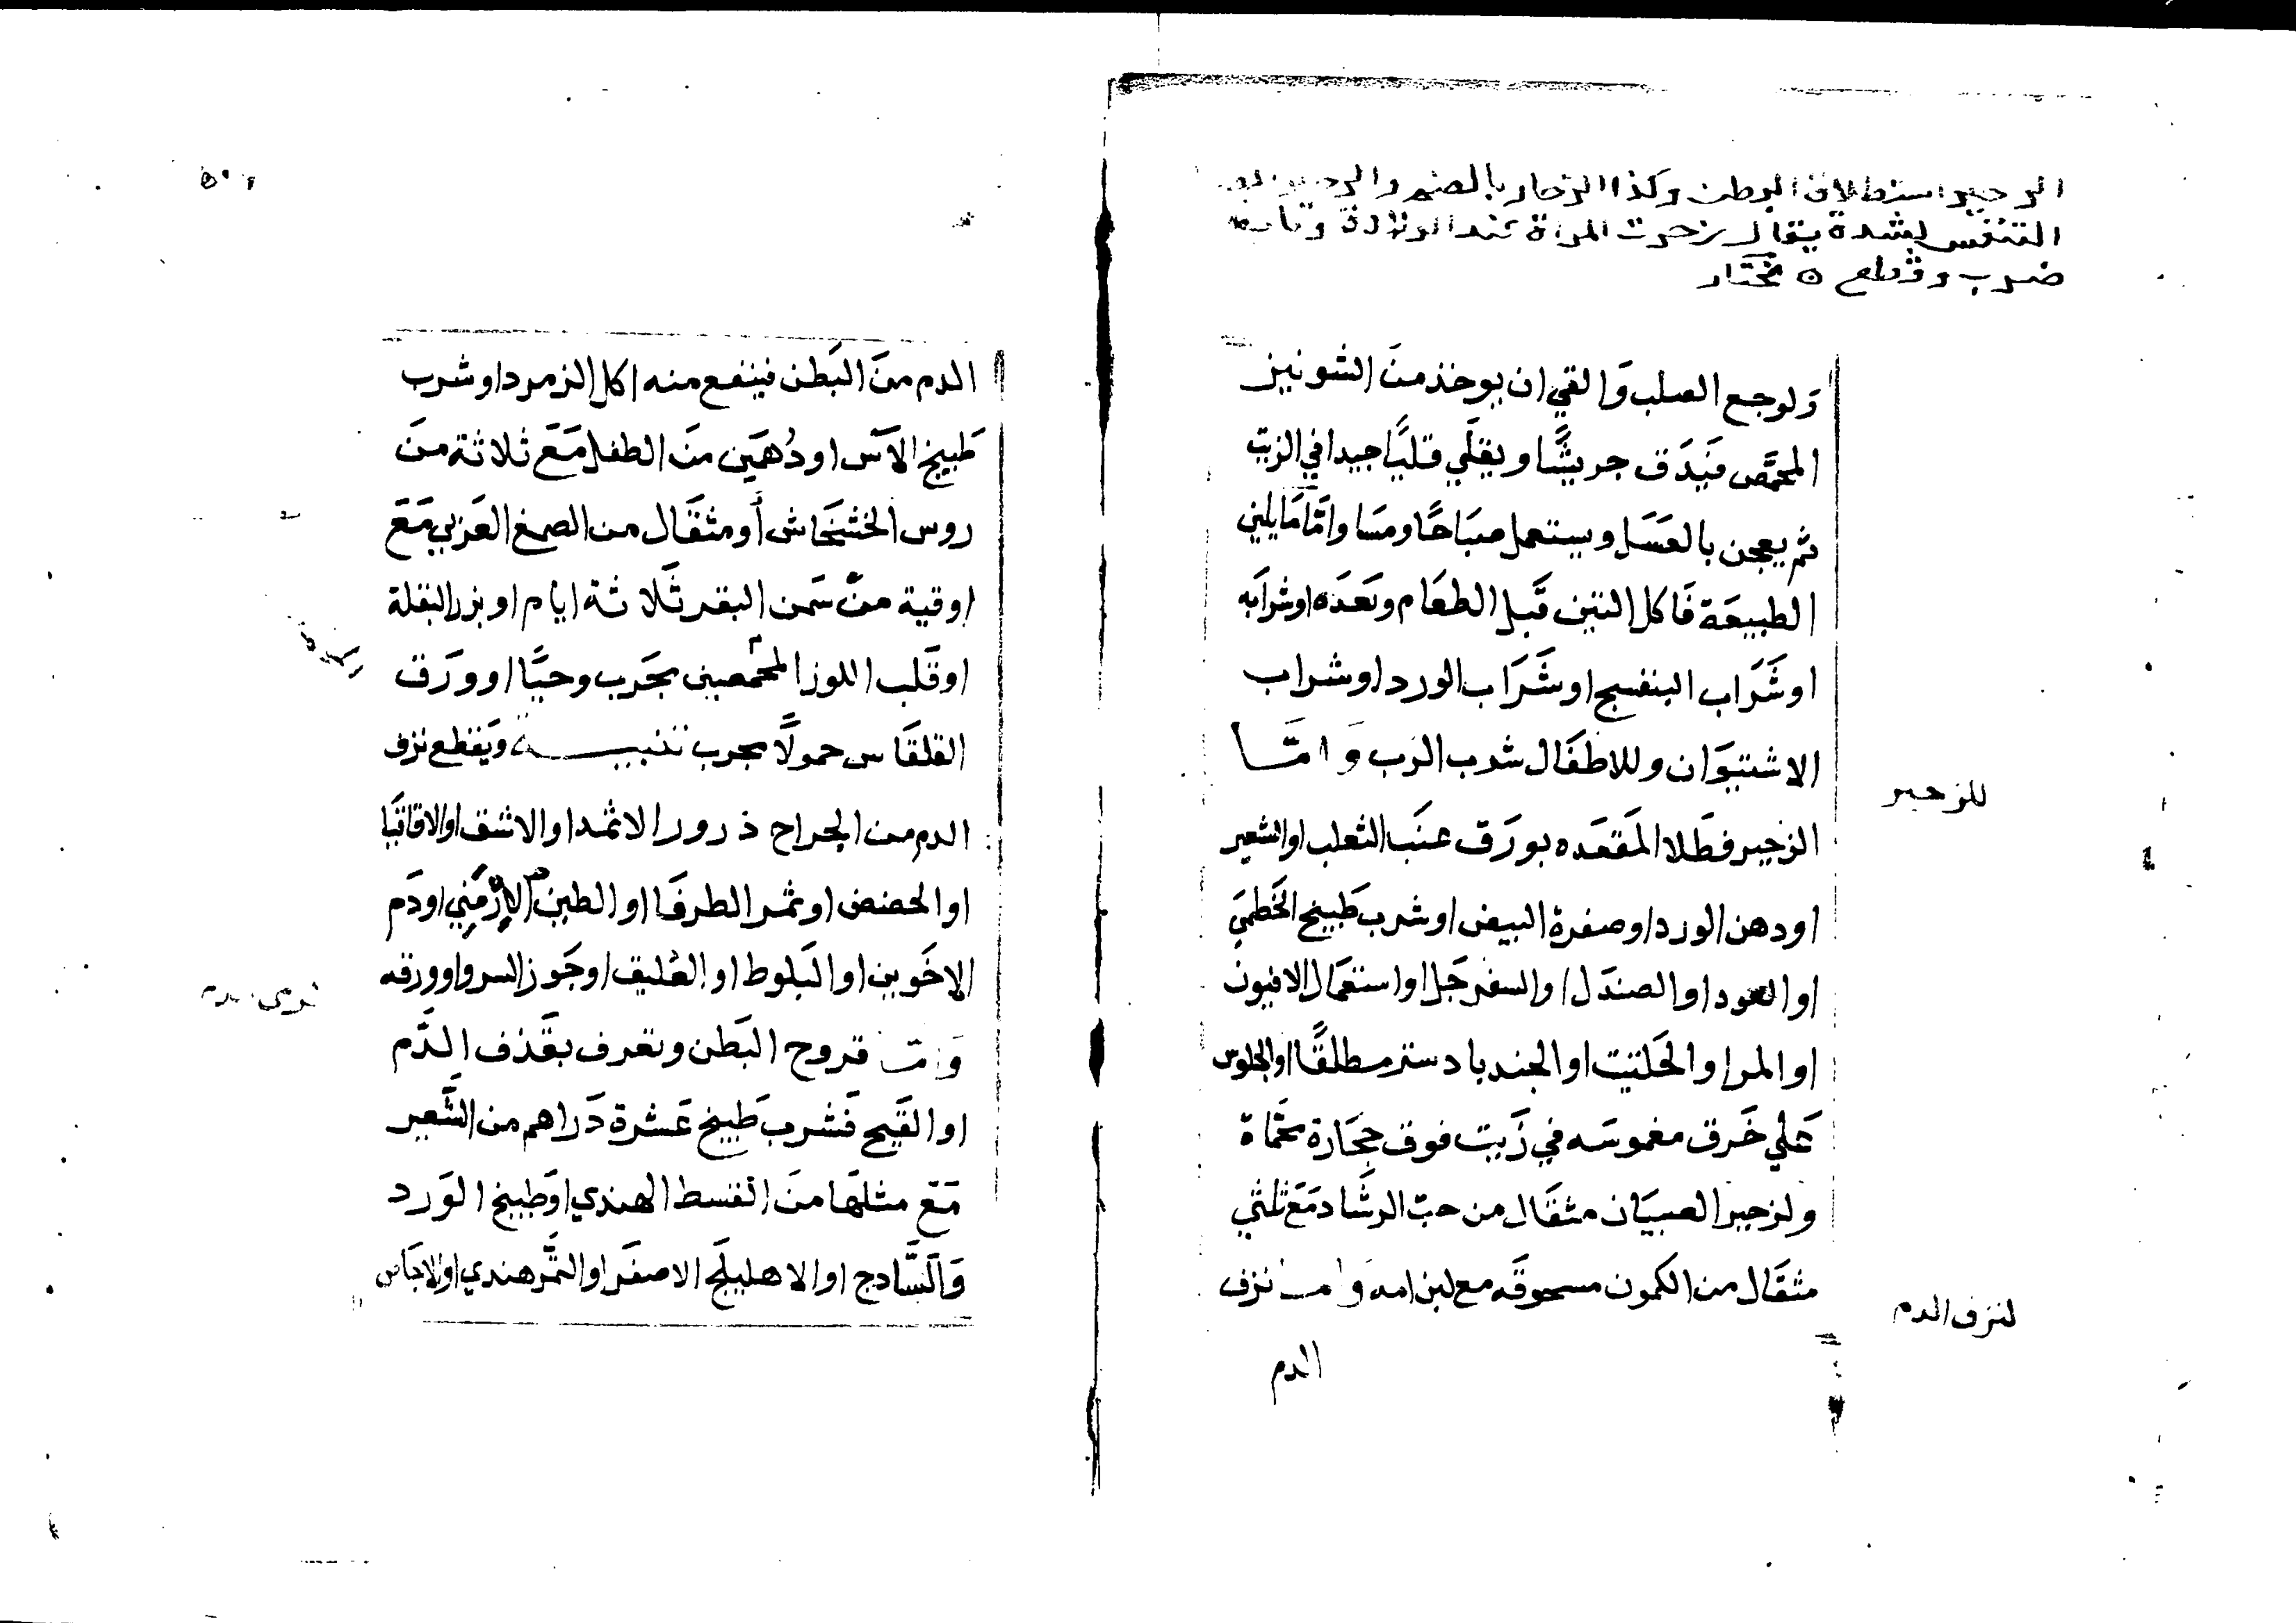 الزحير استطلاق البطن وكذا الزحار بالضم والزحير
التنفس بشدة يقال زحرت المراة عند الولادة وبابه
ضرب وقطع ه مختار
وَلوجع الصلب وَالقي ان يوخذ منَ الشونيز
المحمَّص فَيدَق جريشًا ويقلَي قليًا جيدا في الزيت
ثم يعجن بالعَسَل ويستعمل صبَاحًا ومسَا وامَّا مَا يلين
الطبيعَة فَاكل التين قَبل الطعَام وبَعدَه او شرابَه
او شَرَاب البنفسج او شَرَاب الورد او شراب
الاشتيوَان وللاطفَال شرب الرب وَامَّا
للزحير
الزحير فطَلا المَقعَده بورَق عنَب الثعلب او الشعير
او دهن الورد او صفرة البيض او شرب طَبيخ الخَطمَي
او العود او الصندَل او السفرجَل او استعمَال الافيون
او المر او الحَلتيت او الجند بادستر مطلقًا او الجلوس
عَلي خَرق مغموسَه في زَيت فوق حِجَارة محَمَاة
ولزحير الصبيَان مثقَال من حبّ الرشَاد مَعَ ثلثي
مثقَال من الكمون مسحوقَه مع لبن امه وَاما نزف
لنزف الدم
الدم
الدم منَ البَطن فينفع منه اكل الزمرد او شرب
طَبيخ الآس او دُهَين منَ الطفل مَعَ ثلاثة منَ
روس الخشخَاش أو مثقَال من الصمغ العَربي مَعَ
اوقية منْ سَمن البقر ثَلاثة ايام او بزر البقلة
او قَلب اللوز المحمصين مجَرب وحيًّا او ورَق
القلقَاس حمولًا مجرب تنبيه وَيقطع نزف
الدم من الجراح ذرور الاثمد او الاشق او الاقاقيَا
او الحضض او ثمر الطرفَا او الطين الارمَني او دَم
الاخَوين او البَلوط او العُليق او جَوز السرو او ورقه
وَاما قروح البَطن وتعرف بقَذف الدَّم
او القَيح فَشرب طَبيخ عَشرة دَراهم من الشَّعير
مَعَ مثلهَا منَ القسط الهندي او طَبيخ الوَرد
وَالسَّادج او الاهليلَج الاصفَر او التَّمر هندي او الاجَاص